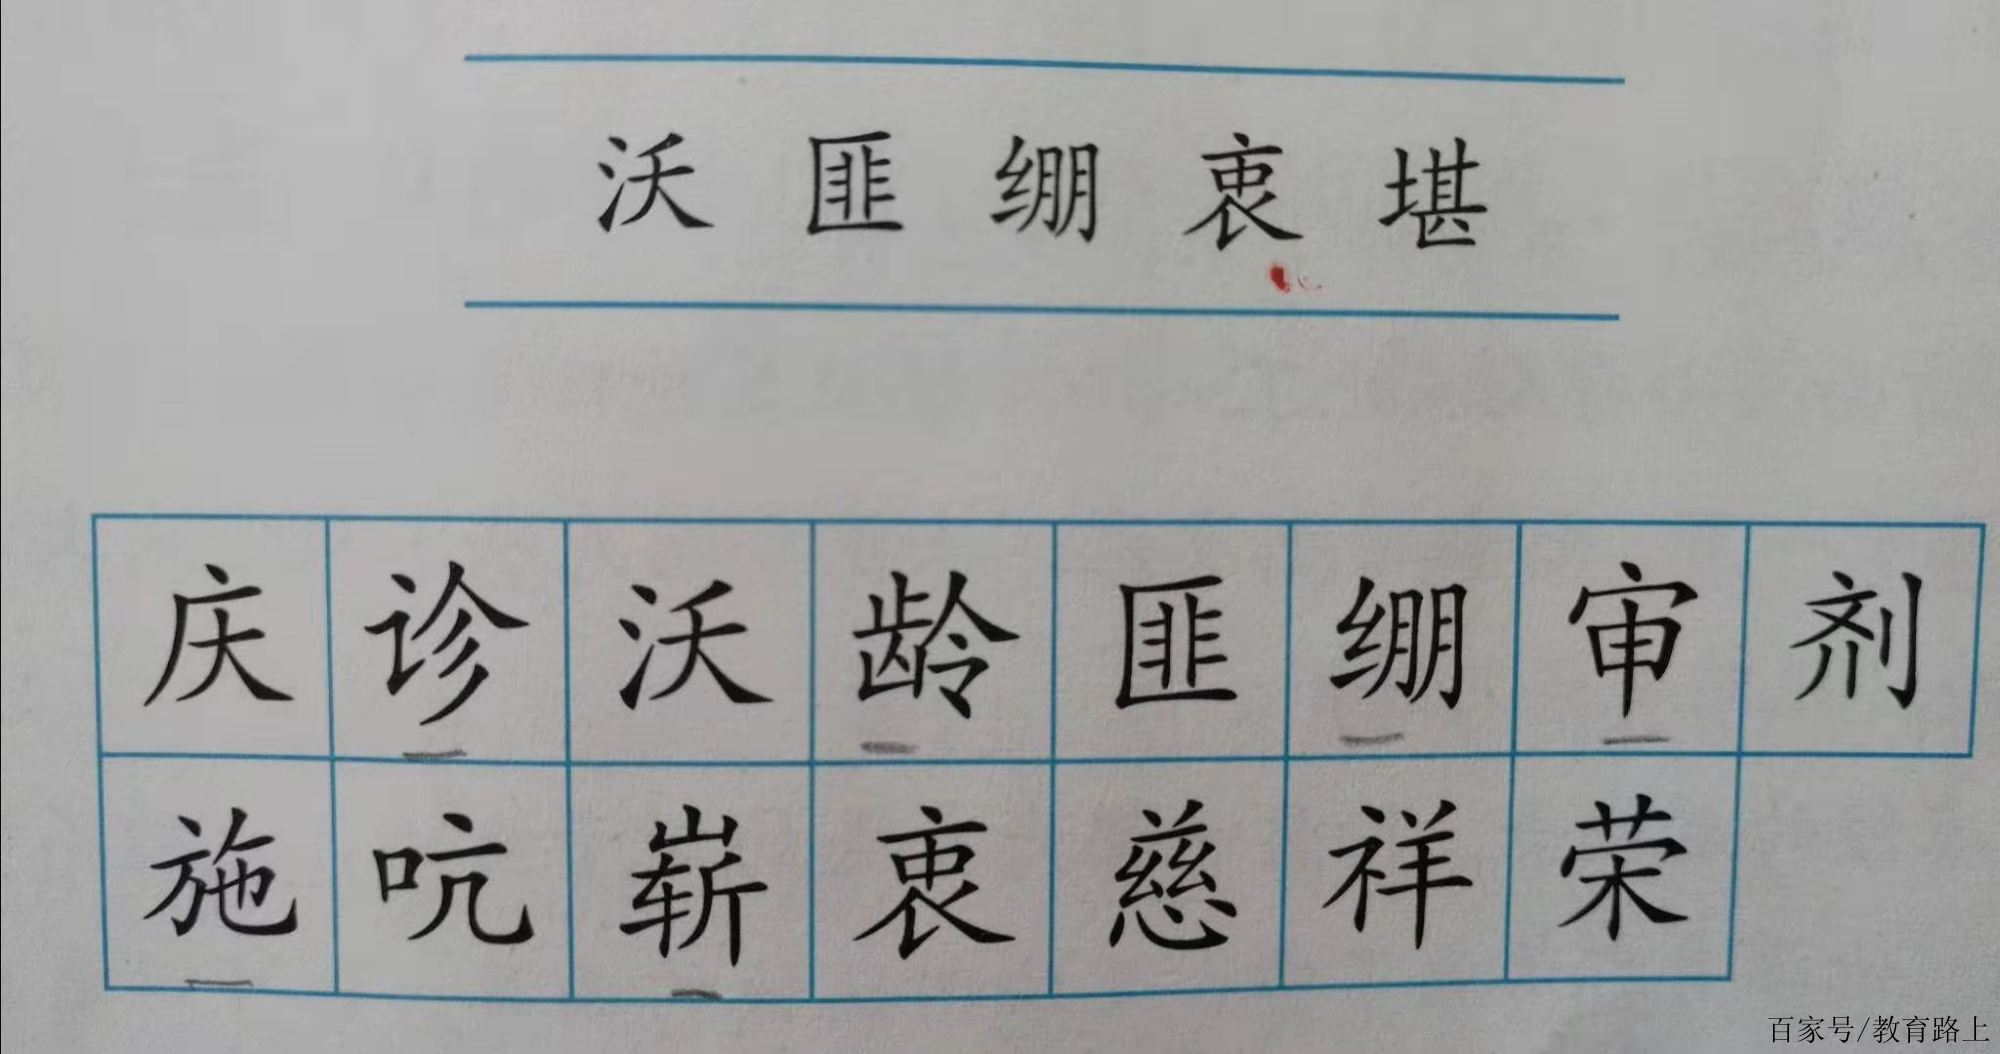 沃 匪 绷 衷 堪
庆 诊 沃 龄 匪 绷 审 剂
施 吭 崭 衷 慈 祥 荣
百家号/教育路上